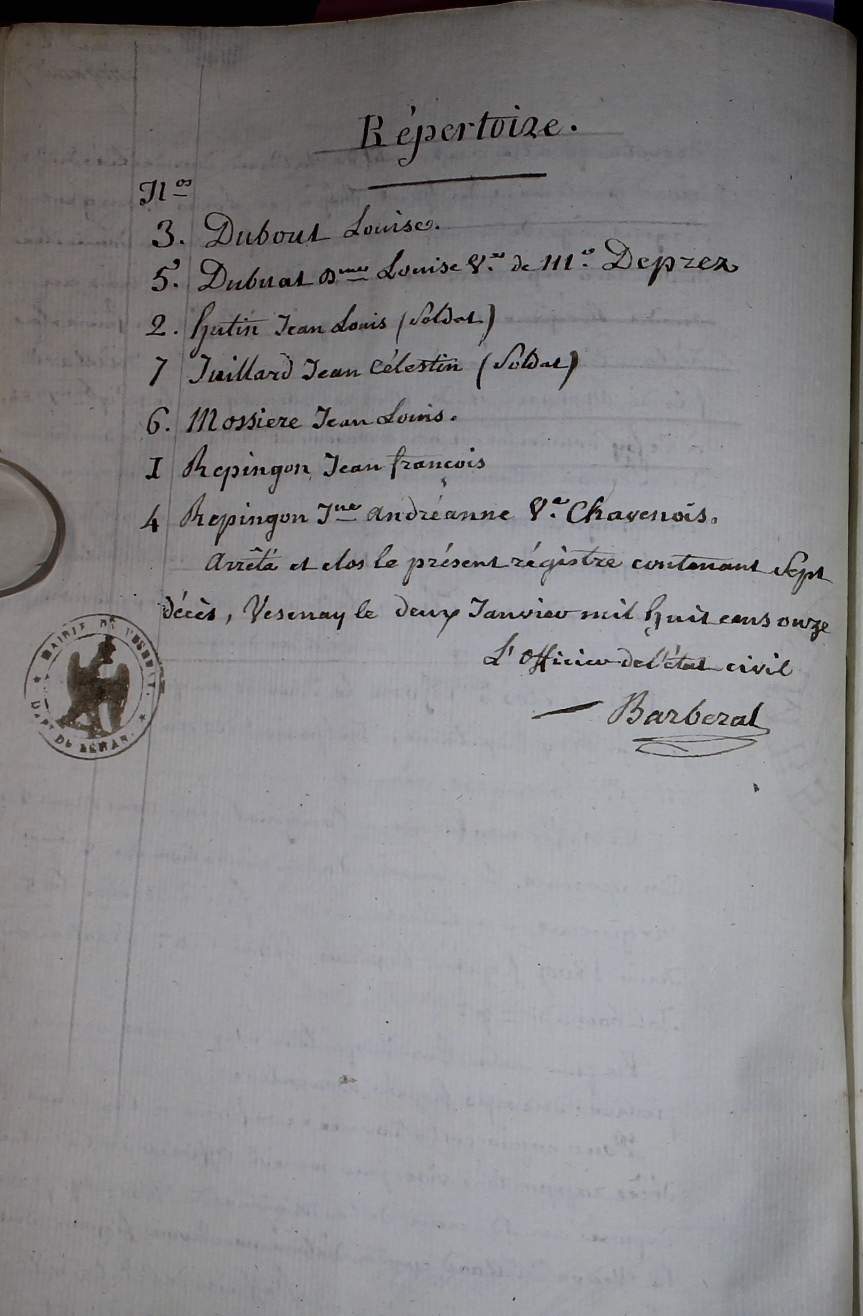 Répertoire.
Nos
3. Dubout Louise.
5. Dubuat Dme Louise Ve de Me Deprez
2. Hutin Jean Louis (Soldat)
7 Juillard Jean Célestin (Soldat)
6. Mossiere Jean Louis.
I Repingon Jean françois
4 Repingon Jne andréanne Ve Chavenois.
arrêté et clos le présent régistre contenant Sept
décès, Vesenay le deux Janvier mil huit cens onze
L'officier de l'état civil
Barberat
MAIRIE DE
DU LÉMAN